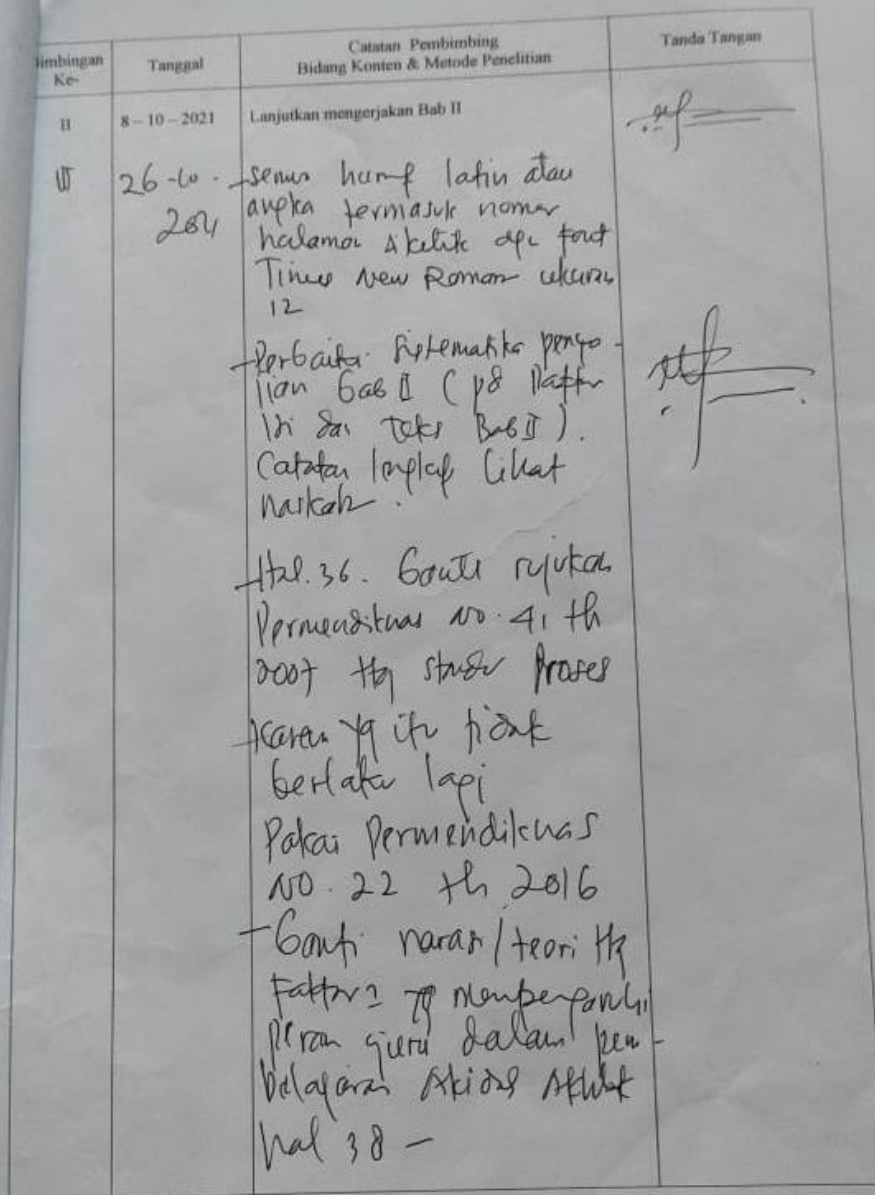 imbingan Ke-
Tanggal
Catatan Pembimbing
Bidang Konten & Metode Penelitian
Tanda Tangan
II
8 – 10 – 2021
Lanjutkan mengerjakan Bab II
III
26-10-
2021
- semua huruf latin atau
angka termasuk nomor
halaman diketik dgn font
Times New Roman ukuran
12
- Perbaiki sistematika penya-
jian Bab II (pd Daftar
Isi dan teks Bab II).
Catatan lengkap lihat
naskah.
- Hal. 36. Ganti rujukan
Permendiknas No. 41 th
2007 ttg standar Proses
karena yg itu tidak
berlaku lagi
Pakai Permendiknas
NO. 22 th 2016
- Ganti narasi/teori ttg
Faktor2 yg mempengaruhi
peran guru dalam pem-
belajaran Akidah Akhlak
hal 38 -